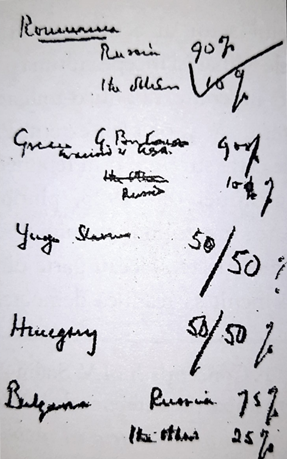 Roumania
Russia 90%
The others 10%
Greece G. Britain 90%
in accord with U.S.A.
The others
Russia 10%
Yugo Slavia 50/50 %
Hungary 50/50 %
Bulgaria Russia 75%
The others 25%